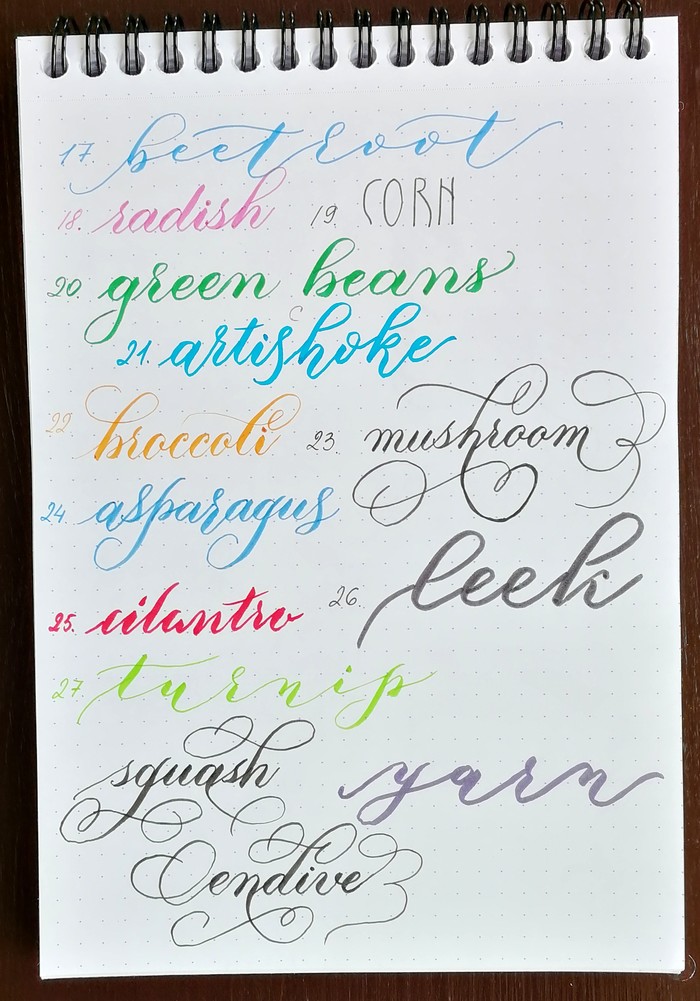 17. beetroot
18. radish 19. CORN
20. green beans
c
21. artishoke
22. broccoli 23. mushroom
24. asparagus
25. cilantro 26. leek
27. turnip
squash yarn
endive